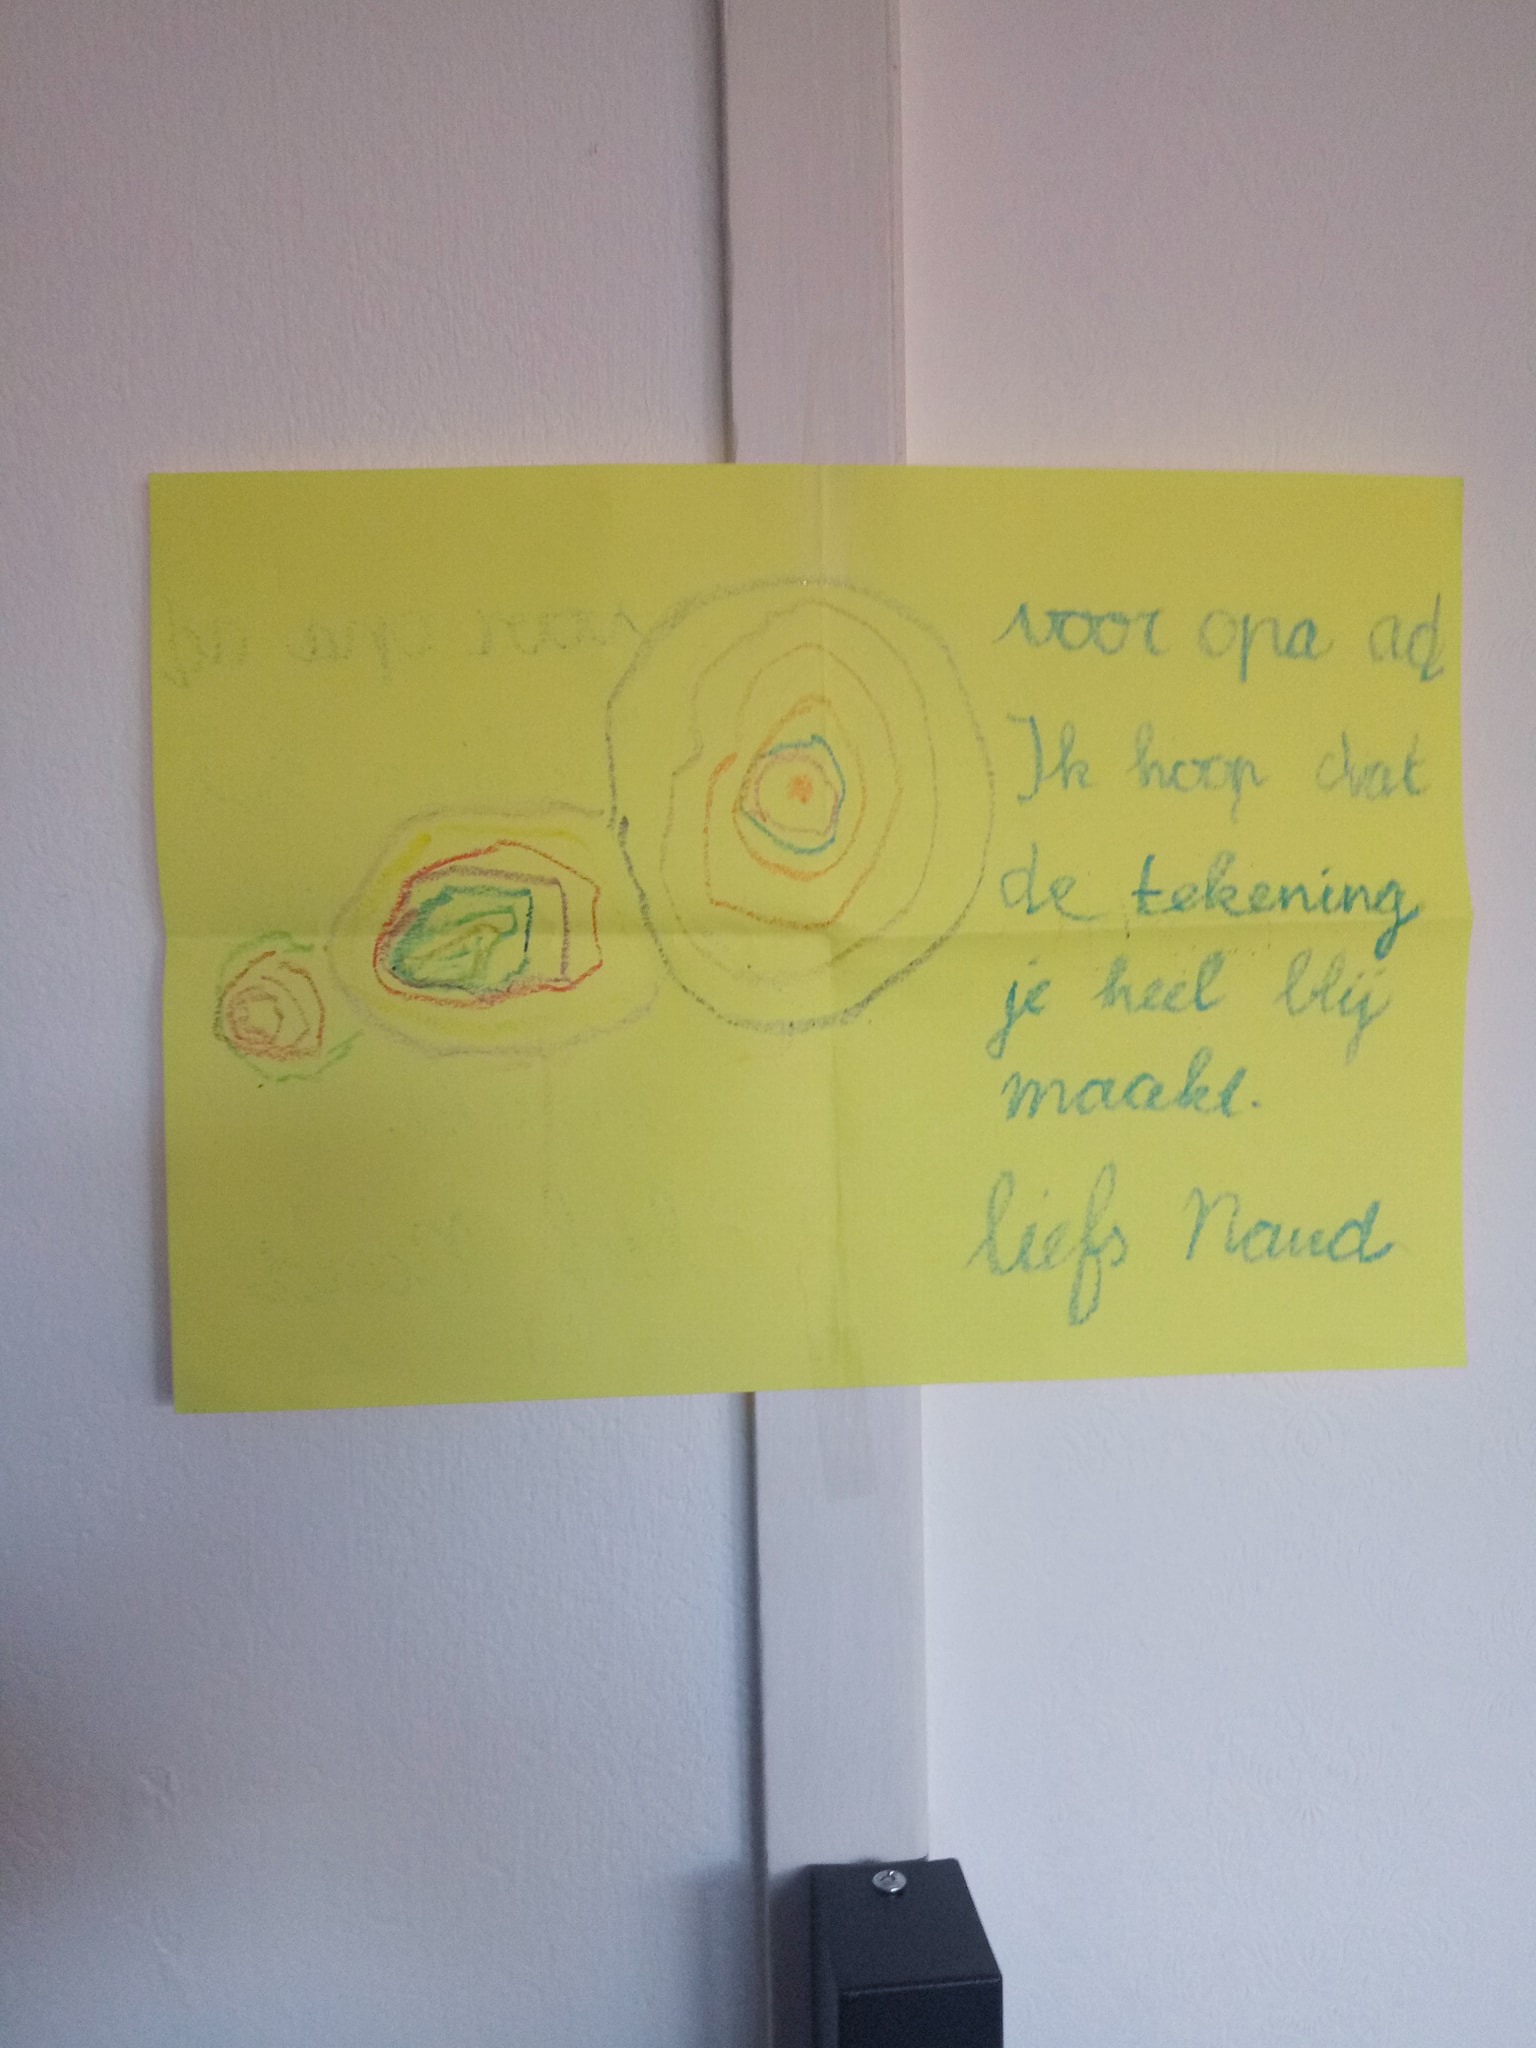 voor opa ad
Ik hoop dat
de tekening
je heel blij
maakt.
liefs Naud